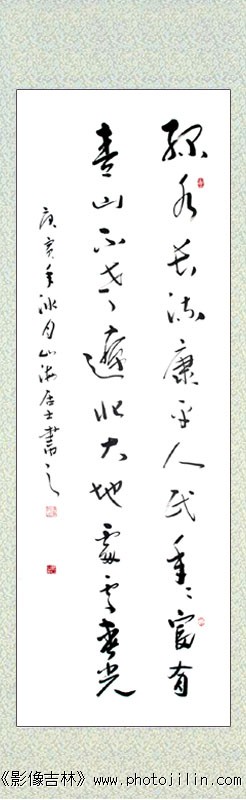 绿水长流康平人民年々富有
青山不老遼北大地處々春光
庚寅年冰月山海居士書之
《影像吉林》www.photojilin.com